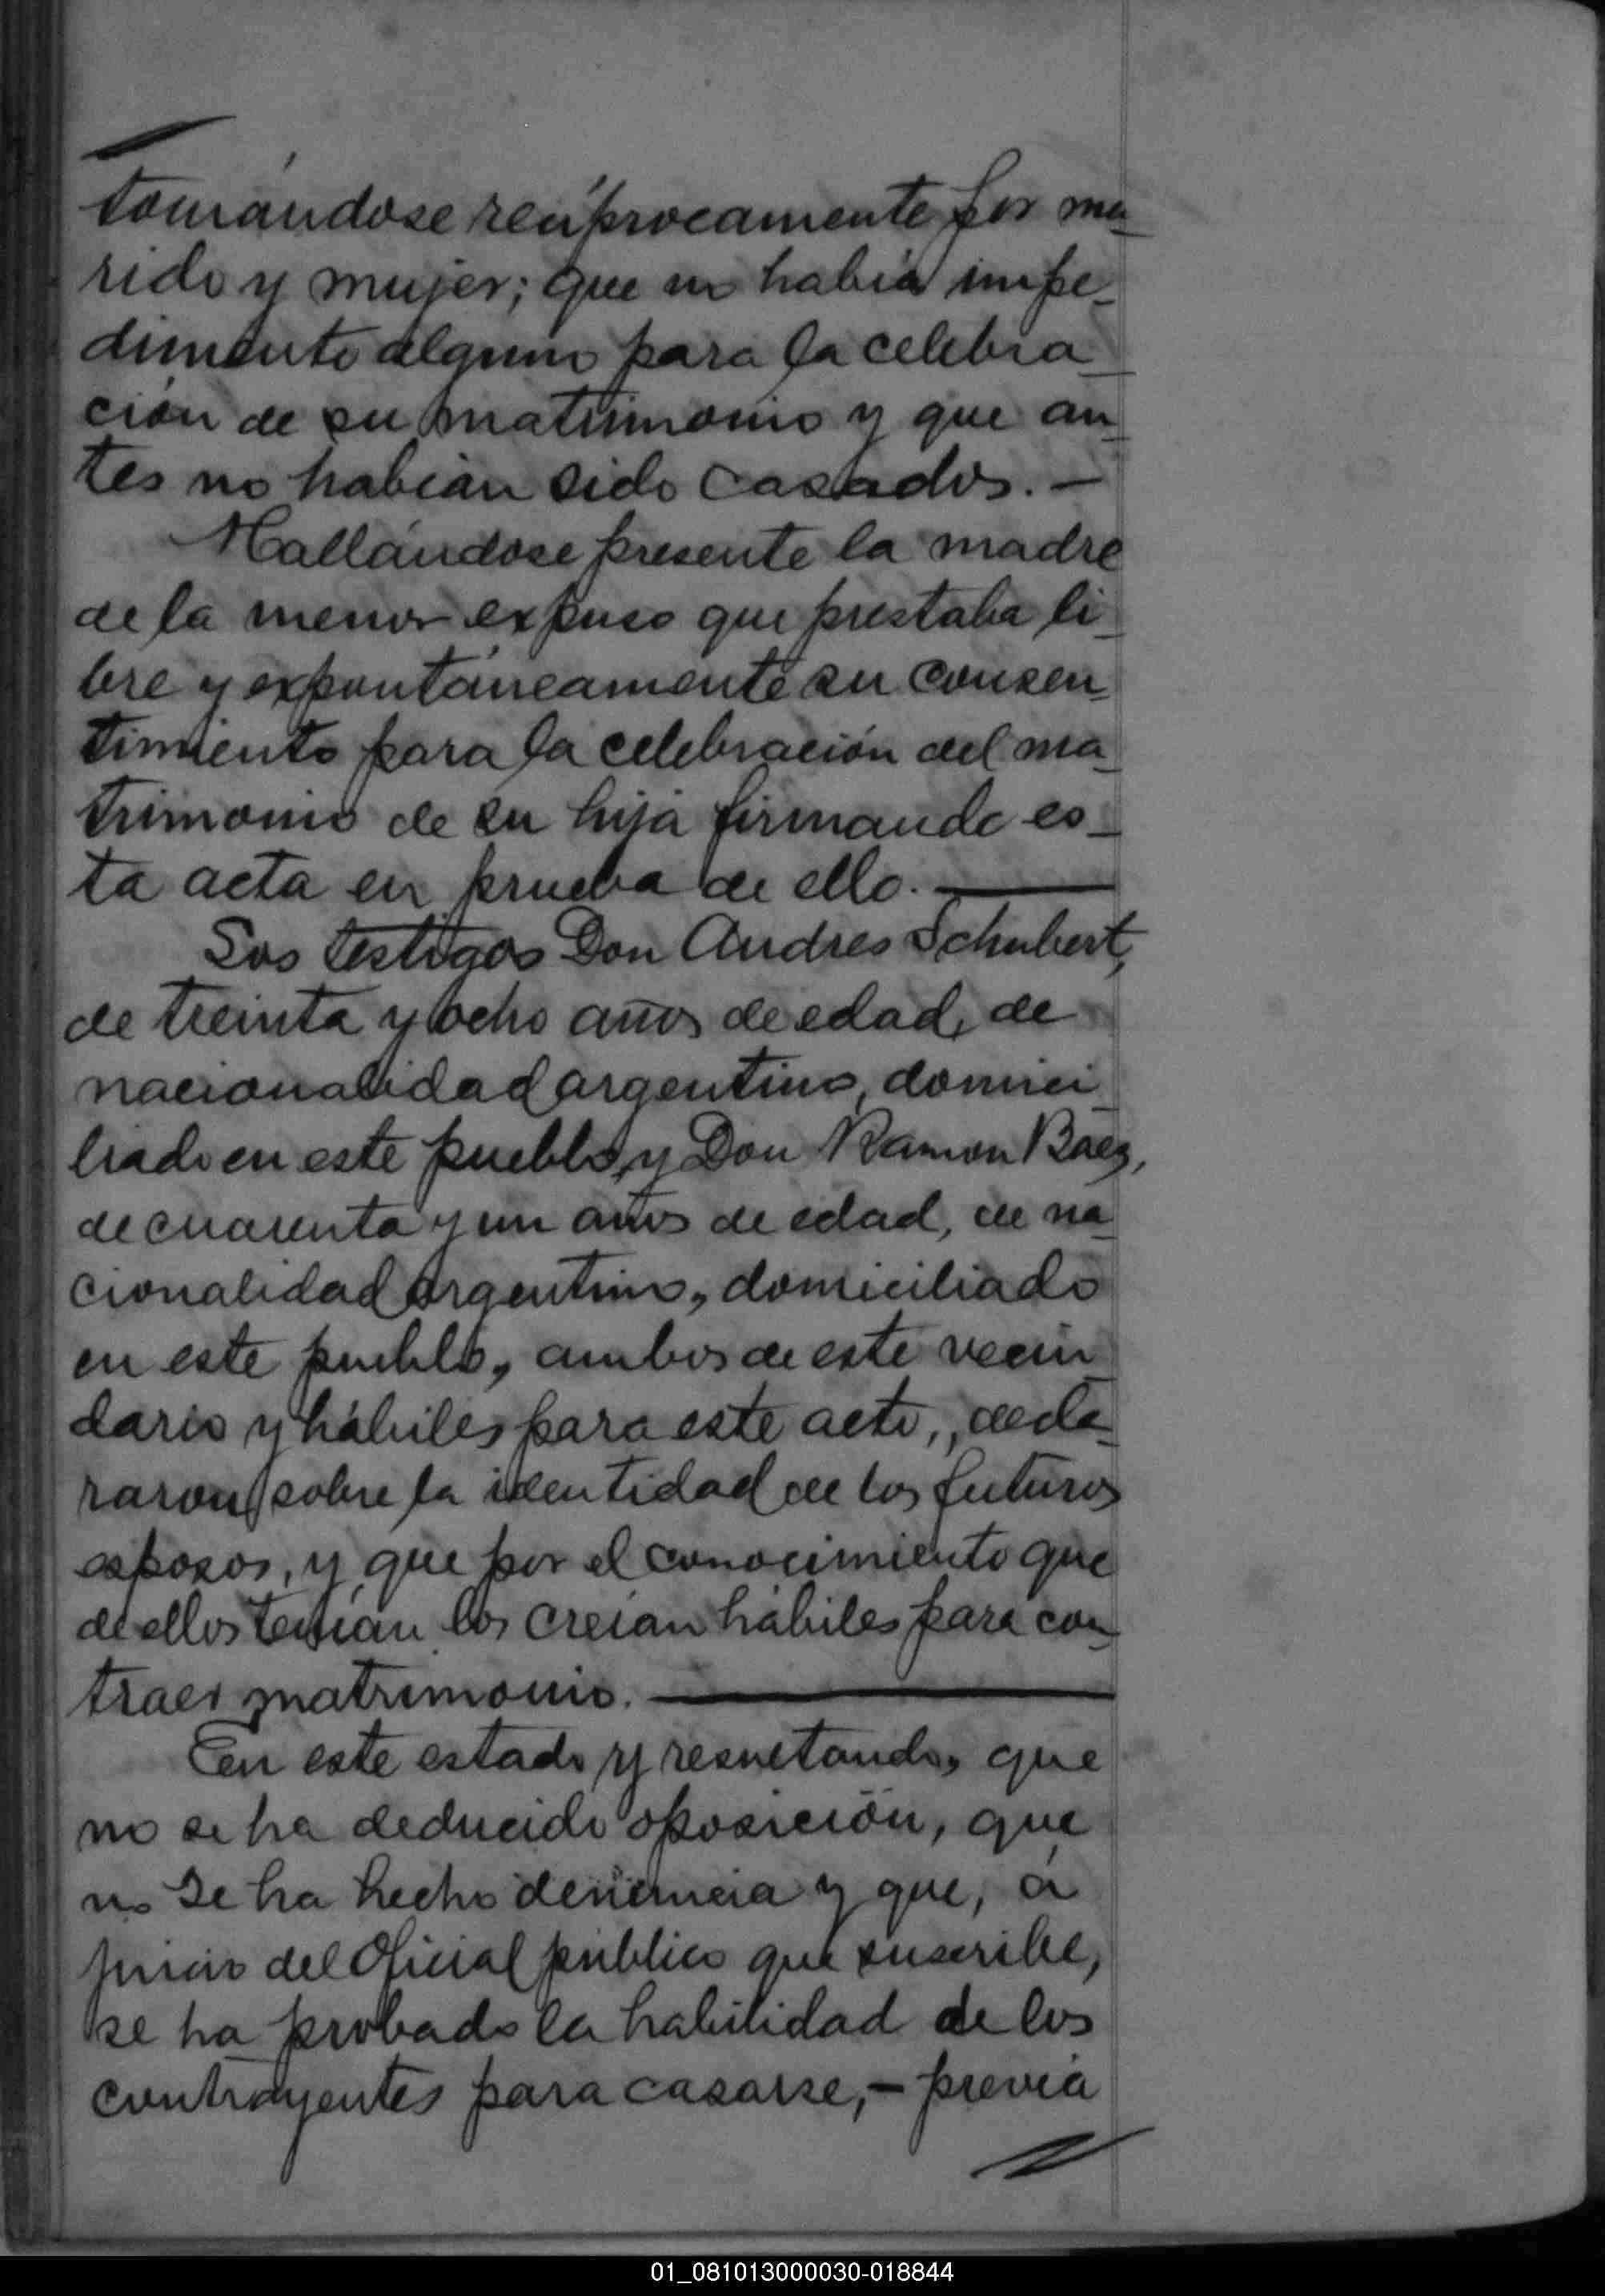 tomándose recíprocamente por ma_
rido y mujer; que no había impe_
dimento alguno para la celebra_
ción de su matrimonio y que an_
tes no habían sido casados. —
Hallándose presente la madre
de la menor expuso que prestaba li_
bre y expontáneamente su consen_
timiento para la celebración del ma_
trimonio de su hija firmando es_
ta acta en prueba de ello. —
Los testigos Don Andres Schubert,
de treinta y ocho años de edad, de
nacionalidad argentino, domici_
liado en este pueblo, y Don Ramon Baez,
de cuarenta y un años de edad, de na_
cionalidad argentino, domiciliado
en este pueblo, ambos de este vecin_
dario y hábiles para este acto, decla_
raron sobre la identidad de los futuros
esposos, y que por el conocimiento que
de ellos tenían los creían hábiles para con_
traer matrimonio. —
En este estado y resultando, que
no se ha deducido oposición, que
no se ha hecho denuncia y que, á
juicio del Oficial público que suscribe,
se ha probado la habilidad de los
contrayentes para casarse, — previa
01_081013000030-018844